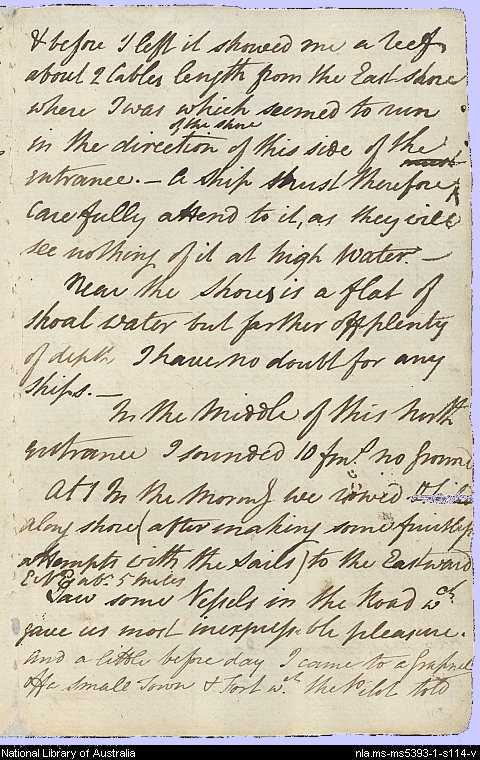 & before I left it showed me a reef
about 2 Cables length from the East shore
where I was which seemed to run
of the shore
in the direction of this side of the
entrance. — A ship must therefore
carefully attend to it, as they will
see nothing of it at high water. —
Near the shore is a flat of
shoal water but farther off plenty
of depth I have no doubt for any
ships. —
In the Middle of this North
entrance I sounded 10 fms no ground
At 1 In the Morng we rowed
along shore (after making some fruitless
attempts with the sails) to the Eastward
abt 5 miles
Saw some Vessels in the Road wch
gave us most inexpressible pleasure.
and a little before day I came to a Grapnel
off a small Town & Fort wch the Pilot told
National Library of Australia
nla.ms-ms5393-1-s114-v